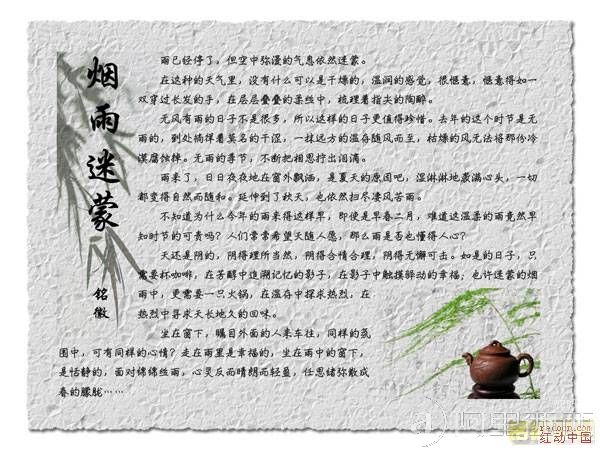 烟雨迷蒙
铭徽
雨已经停了，但空中弥漫的气息依然迷蒙。
在这种的天气里，没有什么可以是干燥的，温润的感觉，很惬意，惬意得如一
双穿过长发的手，在层层叠叠的柔丝中，梳理着指尖的陶醉。
无风有雨的日子不是很多，所以这样的日子更值得珍惜。去年的这个时节是无
雨的，到处徜徉着莫名的干涩，一抹远方的温存随风而至，枯燥的风无法将那份冷
漠腐蚀掉。无雨的季节，不断把相思拧出泪滴。
雨来了，日日夜夜地在窗外飘洒，是夏天的原因吧，湿淋淋地漱满心头，一切
都变得自然而随和。延伸到了秋天，也依然扫尽凄风苦雨。
不知道为什么今年的雨来得这样早，即使是早春二月，难道这温柔的雨竟然早
知时节的可贵吗？人们常常希望天随人愿，那么雨是否也懂得人心？
天还是阴的，阴得理所当然，阴得合情合理，阴得无懈可击。如是的日子，只
需要杯咖啡，在芳醇中追溯记忆的影子，在影子中触摸骅动的幸福，也许迷蒙的烟
雨中，更需要一只火锅，在温存中探求热烈，在
热烈中寻求天长地久的回味。
坐在窗下，瞩目外面的人来车往，同样的氛
围中，可有同样的心情？走在雨里是幸福的，坐在雨中的窗下，
是恬静的，面对绵绵丝雨，心灵反而晴朗而轻盈，任思绪弥散成
春的朦胧……
redocn.com
红动中国